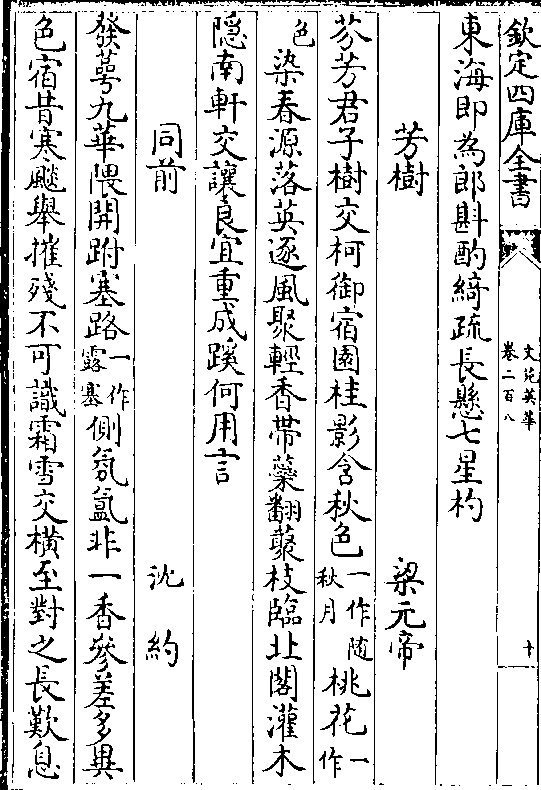 欽定四庫全書
文苑英華
卷二百八
十
東海即為郎斟酌綺疏長懸七星杓
芳樹 梁元帝
芬芳君子樹交柯御宿園桂影含秋色一作随秋月桃花一作
色染春源落英逐風聚輕香帶蘂翻䕺枝臨北閣灌木
隠南軒交讓良宜重成蹊何用言
同前 沈約
發萼九華隈開跗塞路一作露塞側氛氲非一香參差多異
色宿昔寒飈舉摧殘不可識霜雪交橫至對之長歎息